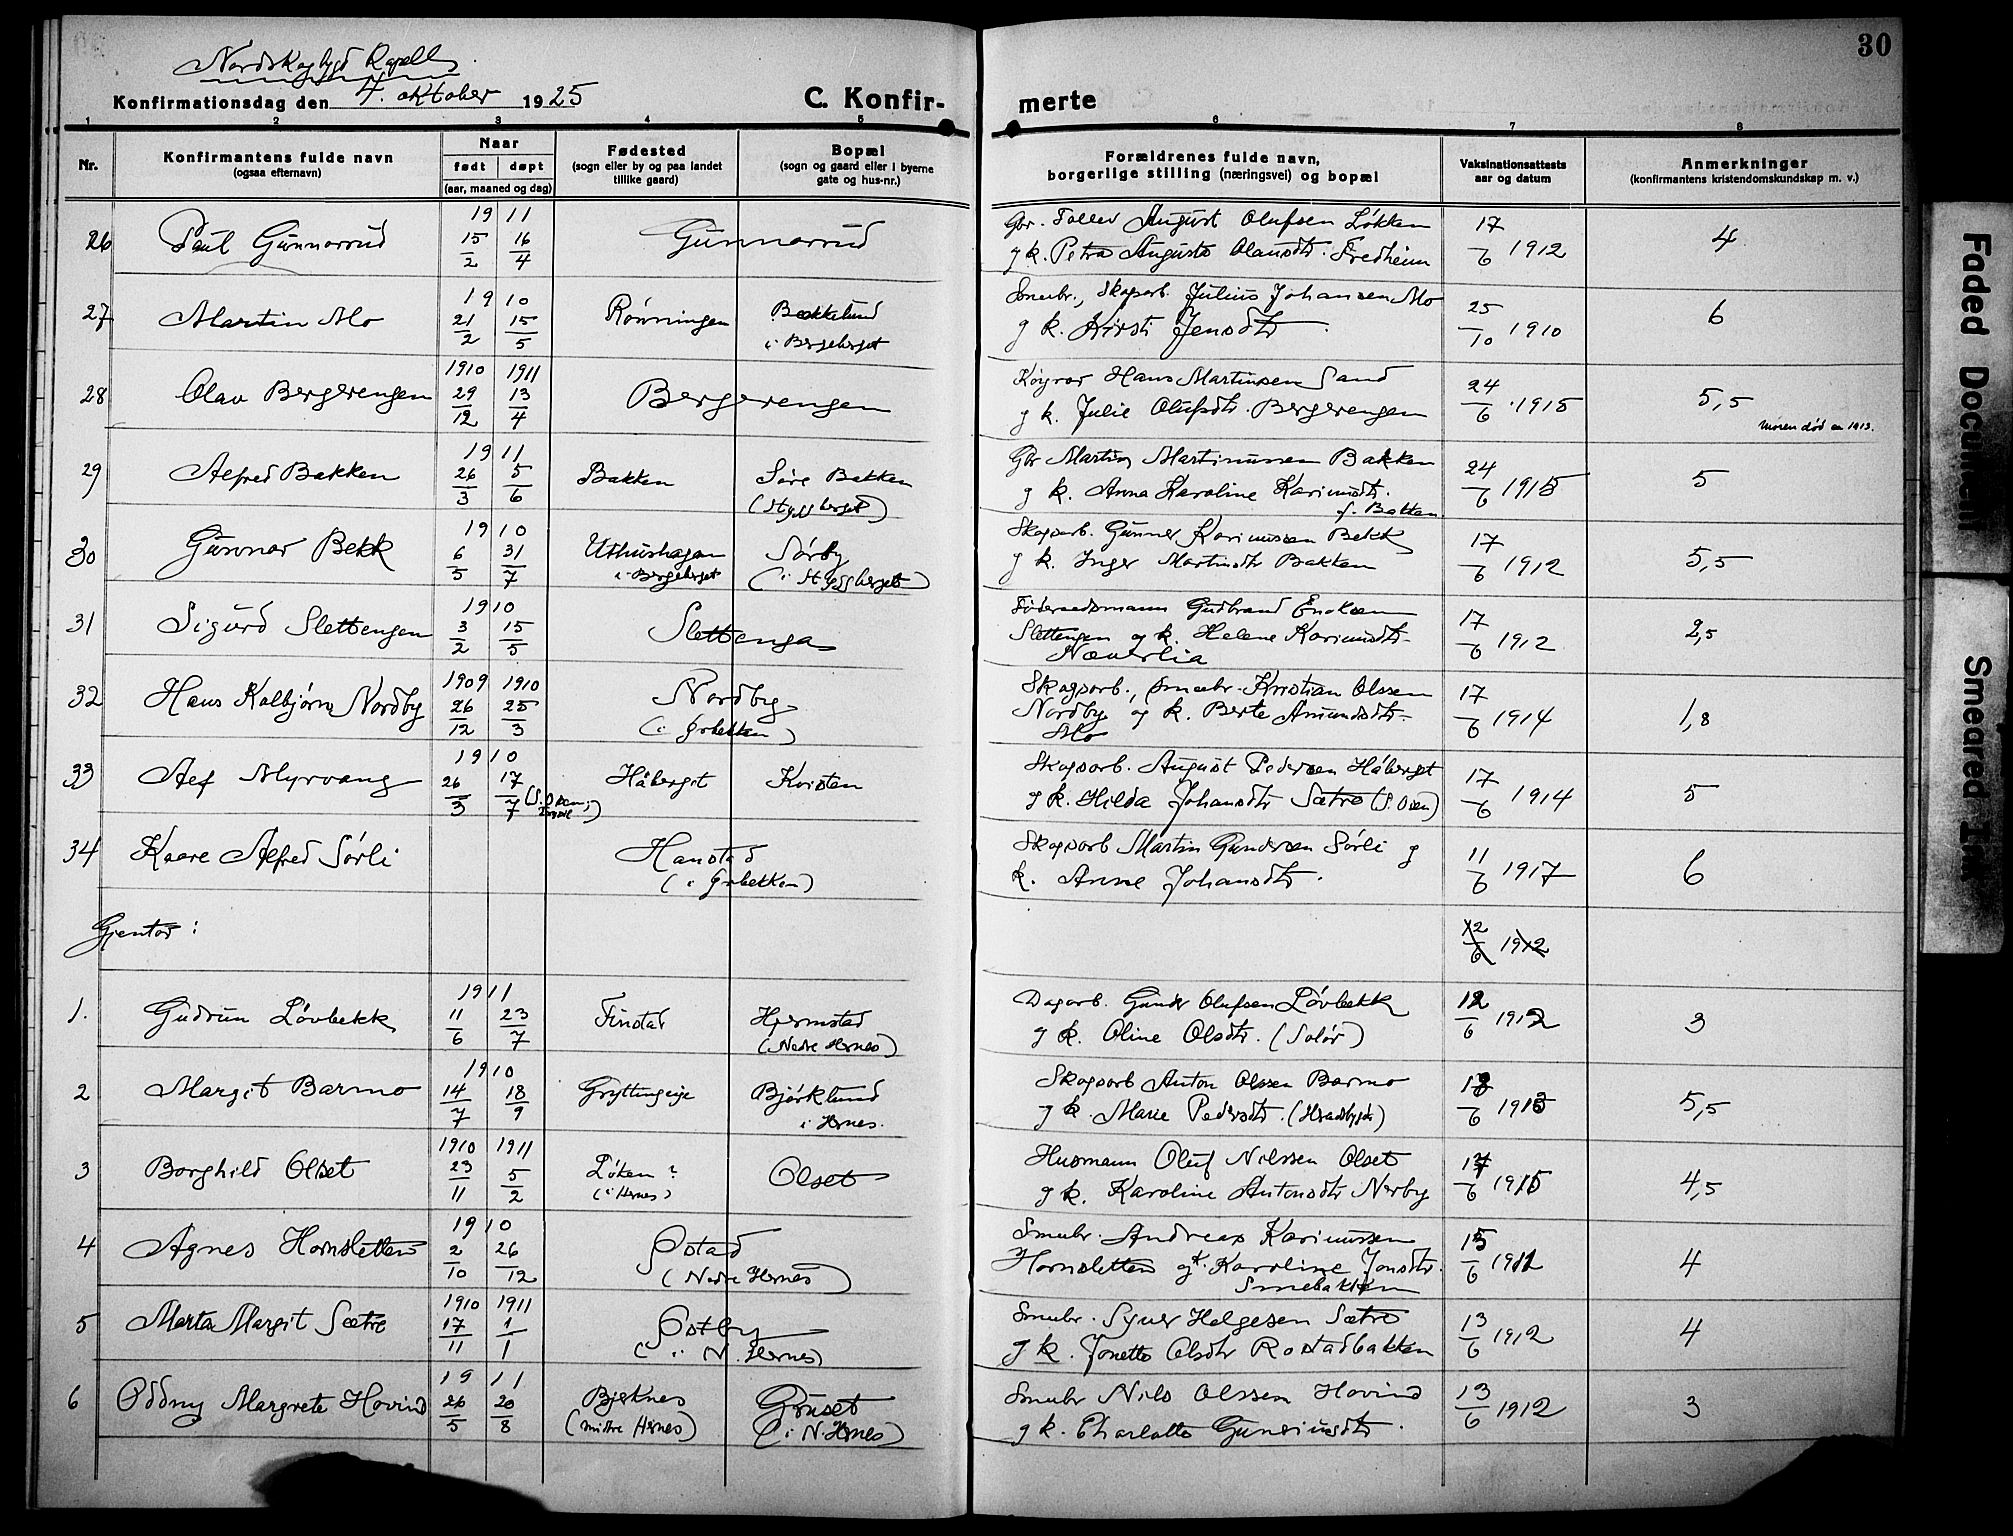 30
Nordskogbygd Kapell
Konfirmationsdag den 4. oktober 1925
C. Konfir-
merte
1 2 3 4 5 6 7 8
Nr.
Konfirmantens fulde navn
(ogsaa efternavn)
Naar
født døpt
(aar, maaned og dag)
Fødested
(sogn eller by og paa landet
tillike gaard)
Bopæl
(sogn og gaard eller i byerne
gate og hus-nr.)
Forældrenes fulde navn,
borgerlige stilling (næringsvei) og bopæl
Vaksinationsattests
aar og datum
Anmerkninger
(konfirmantens kristendomskundskap m. v.)
26 Paul Gunnarrud 1911 15/2 16/4 Gunnarrud
Gbr. Tollev August Olufsen Løkken
g k. Petra Augusta Olausdtr. Fredheim
17/6 1912 4
27 Martin Mo 1910 21/2 15/5 Rønningen Bakkelund
i Bergeberget
Smubr., Skogarb. Julius Johansen Mo
g k. Kirsti Jensdtr.
25/10 1910 6
28 Olav Bergerengen 1910 29/12 1911 13/4 Bergerengen
Hans Martinsen Sand
g k. Julie Olufsdtr. Bergerengen
24/6 1915 5,5
Moren død 1913.
29 Alfred Bakken 1911 26/3 5/6 Bakken Søre Bakken
(Styggberget)
Gbr Martin Martinussen Bakken
g k. Anna Karoline Karinusdtr.
f. Bakken
24/6 1915 5
30 Gunnar Bekk 1910 6/5 31/7 Uthushagan
i Bergeberget
Sørby
(i Styggberget)
Skogarb. Gunner Karinussen Bekk
g k. Inger Martinsdtr Bakken
17/6 1912 5,5
31 Sigurd Slettengen 1910 3/2 15/5 Slettenga
Føderaadsmann Gudbrand Enoksen
Slettengen og k. Helene Karinusdtr.
Næverlia
17/6 1912 2,5
32 Hans Kolbjørn Nordby 1909 26/12 1910 25/3 Nordby
(i Grbekken)
Skogsarb., Smaabr. Kristian Olssen
Nordby og k. Berte Amundsdtr.
Mo
17/6 1914 1,8
33 Alf Myrvang 1910 26/3 17/7 Håberget Kvisten
Skogsarb. August Pedersen Håberget
g k. Hilda Johansdtr Sætre (S. Osen)
17/6 1914 5
34 Kaare Alfred Sørli Hanstad
(i Grbekken)
Skogsarb Martin Gundersen Sørli g
k. Anne Johansdtr.
11/6 1917 6
Gjenter:
12/6 1912
1. Gudrun Løvbekk 1911 11/6 23/7 Finstad Hjermstad
(Nedre Hernes)
Dagarb. Gunder Olufsen Løvbekk
g k. Oline Olsdtr. (Solør)
12/6 1912 3
2 Margit Barmo 1910 14/7 18/9 Gryttingeie Bjørklund
i Hernes.
Skogsarb Anton Olssen Barmo
g k. Marie Pedersdtr. (Heradsbygd)
13/6 1913 5,5
3 Borghild Olset 1910 23/11 1911 5/2 Løken?
(i Hernes)
Olset
Husmann Oluf Nilssen Olset
g k. Karoline Antonsdtr Nerby
17/6 1915 4,5
4 Agnes Hornsletten 1910 2/10 26/12 Ostad
(Nedre Hernes)
Smubr. Andreas Karinussen
Hornsletten g k. Karoline Jonsdtr.
Smebakken
15/6 1911 4
5 Marta Margit Sætre 1910 17/11 1911 1/1 Østby
(i N. Hernes)
Smubr. Syver Helgesen Sætre
g k. Jonette Olsdtr Rostadbakken
13/6 1912 4
6 Oddny Margrete Hovind 1911 26/5 20/8 Bjerknes
(midtre Hernes)
Gruset
(i N. Hernes)
Smubr Nils Olssen Hovind
g k. Charlotte Guneriusdtr.
13/6 1912 3
Faded Document
Smeared Ink